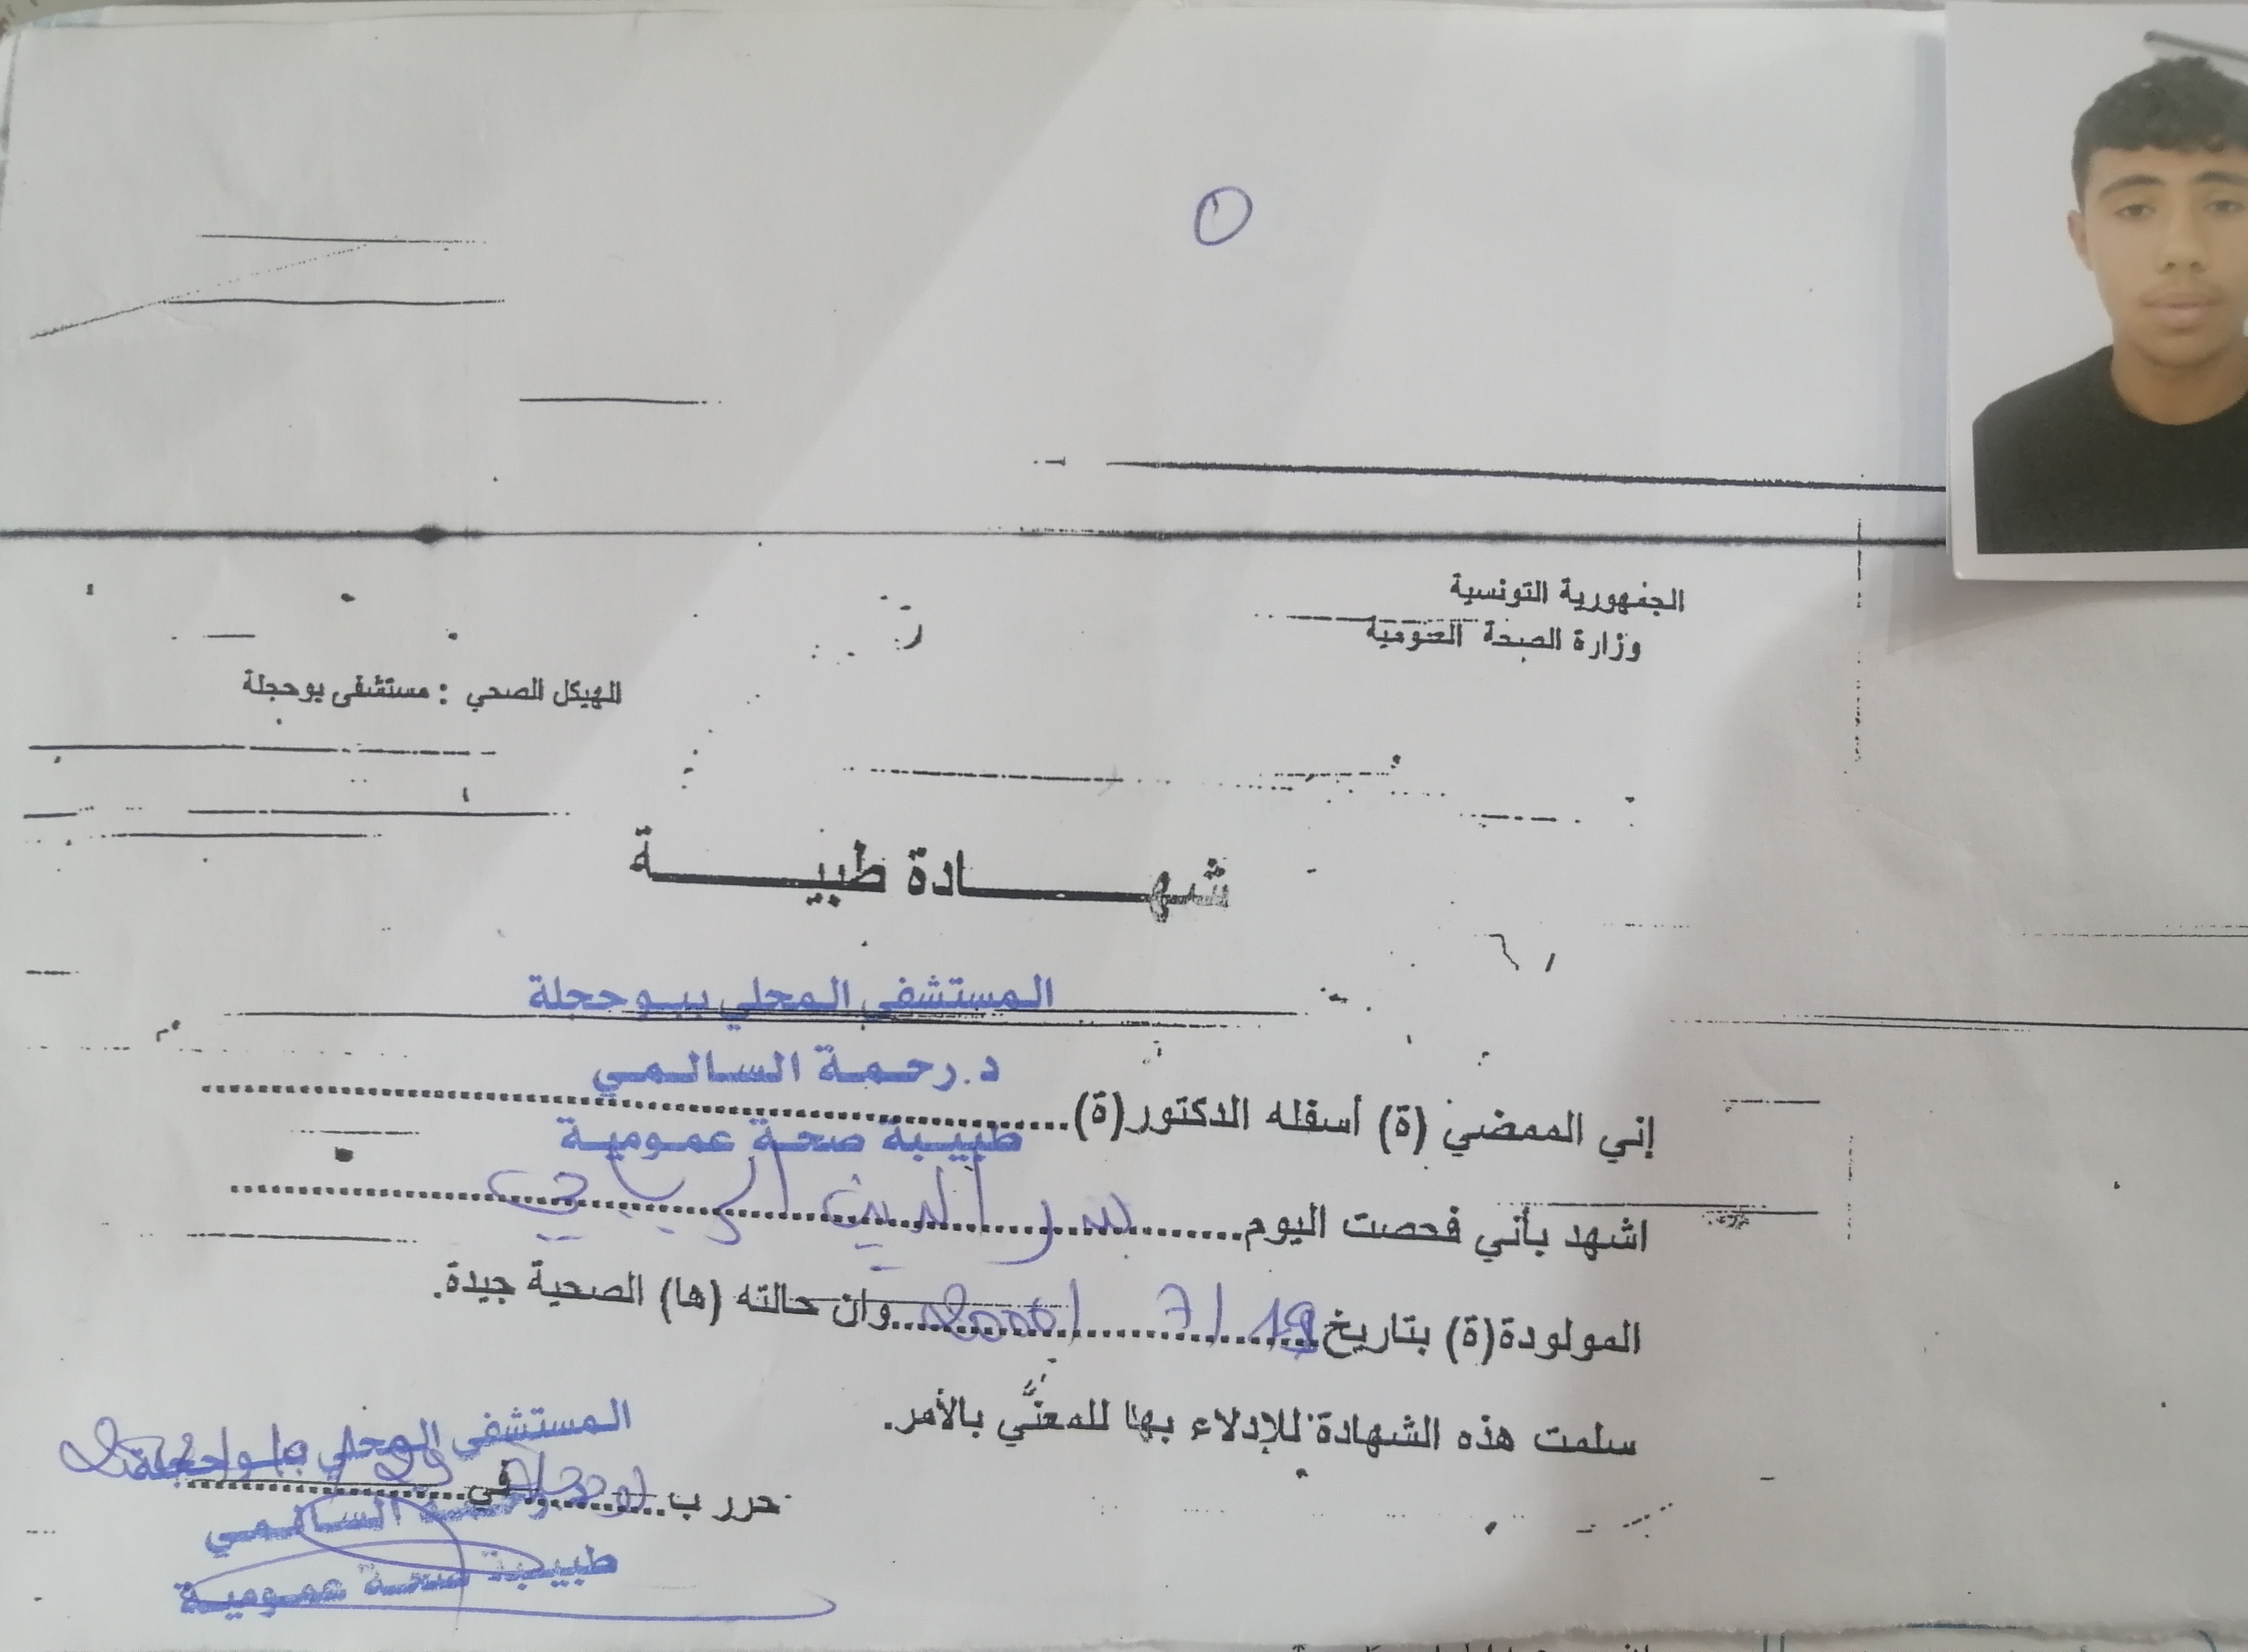 الجمهورية التونسية
وزارة الصحة العمومية
الهيكل الصحي : مستشفى بوحجلة
شهــــــادة طبيــــــة
المستشفى المحلي ببوحجلة
د.رحمة السالمي
إني الممضي (ة) أسفله الدكتور(ة)........................
طبيبة صحة عمومية
اشهد بأني فحصت اليوم........ بدر الدين
المولودة(ة) بتاريخ 19 / 7 / وان حالته (ها) الصحية جيدة.
سلمت هذه الشهادة للإدلاء بها للمعني بالأمر.
المستشفى المحلي ببوحجلة
حرر ب........ في........
السالمي
طبيبة صحة عمومية